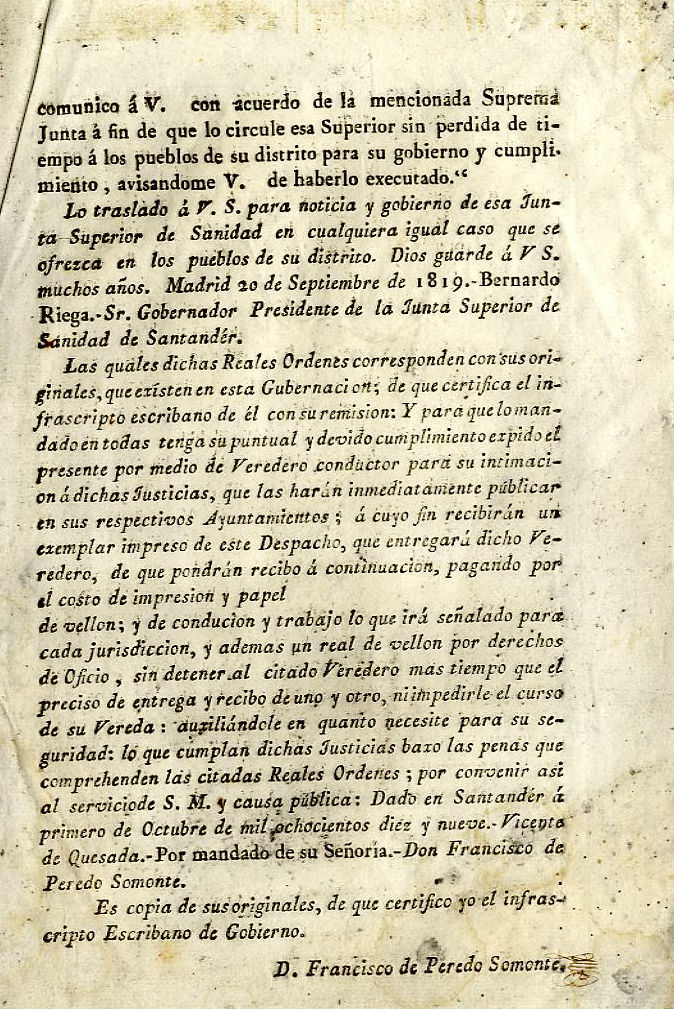 comunico á V. con acuerdo de la mencionada Suprema
Junta á fin de que lo circule esa Superior sin perdida de ti-
empo á los pueblos de su distrito para su gobierno y cumpli-
miento , avisandome V. de haberlo executado.“
Lo traslado á V. S. para noticia y gobierno de esa Jun-
ta Superior de Sanidad en cualquiera igual caso que se
ofrezca en los pueblos de su distrito. Dios guarde á V S.
muchos años. Madrid 20 de Septiembre de 1819.-Bernardo
Riega.-Sr. Gobernador Presidente de la Junta Superior de
Sanidad de Santandér.
Las quales dichas Reales Ordenes corresponden con sus ori-
ginales, que exîsten en esta Gubernacion; de que certifica el in-
frascripto escribano de él con su remision: Y para que lo man-
dado en todas tenga su puntual y devido cumplimiento expido el
presente por medio de Veredero conductor para su intimaci-
on á dichas Justicias, que las harán inmediatamente públicar
en sus respectivos Ayuntamientos ; á cuyo fin recibirán un
exemplar impreso de este Despacho, que entregará dicho Ve-
redero, de que pondrán recibo á continuacion, pagando por
el costo de impresion y papel
de vellon; y de conducion y trabajo lo que irá señalado para
cada jurisdiccion, y ademas un real de vellon por derechos
de Oficio , sin detener al citado Veredero mas tiempo que el
preciso de entrega y recibo de uno y otro, ni impedirle el curso
de su Vereda : auxîliándole en quanto necesite para su se-
guridad: lo que cumplan dichas Justicias baxo las penas que
comprehenden las citadas Reales Ordenes ; por convenir asi
al servicio de S. M. y causa pública: Dado en Santandér á
primero de Octubre de mil ochocientos diez y nueve.-Vicente
de Quesada.-Por mandado de su Señoría.-Don Francisco de
Peredo Somonte.
Es copia de sus originales, de que certifico yo el infras-
cripto Escribano de Gobierno.
D. Francisco de Peredo Somonte.